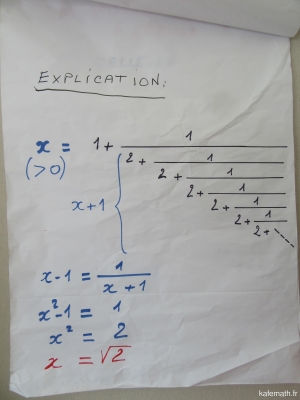 EXPLICATION:
x = 1 + 1
(>0) 2 + 1
2 + 1
x+1 2 + 1
2 + 1
2 + 1
2 + ...
x-1 = 1
x+1
x²-1 = 1
x² = 2
x = √2
kafemath.fr